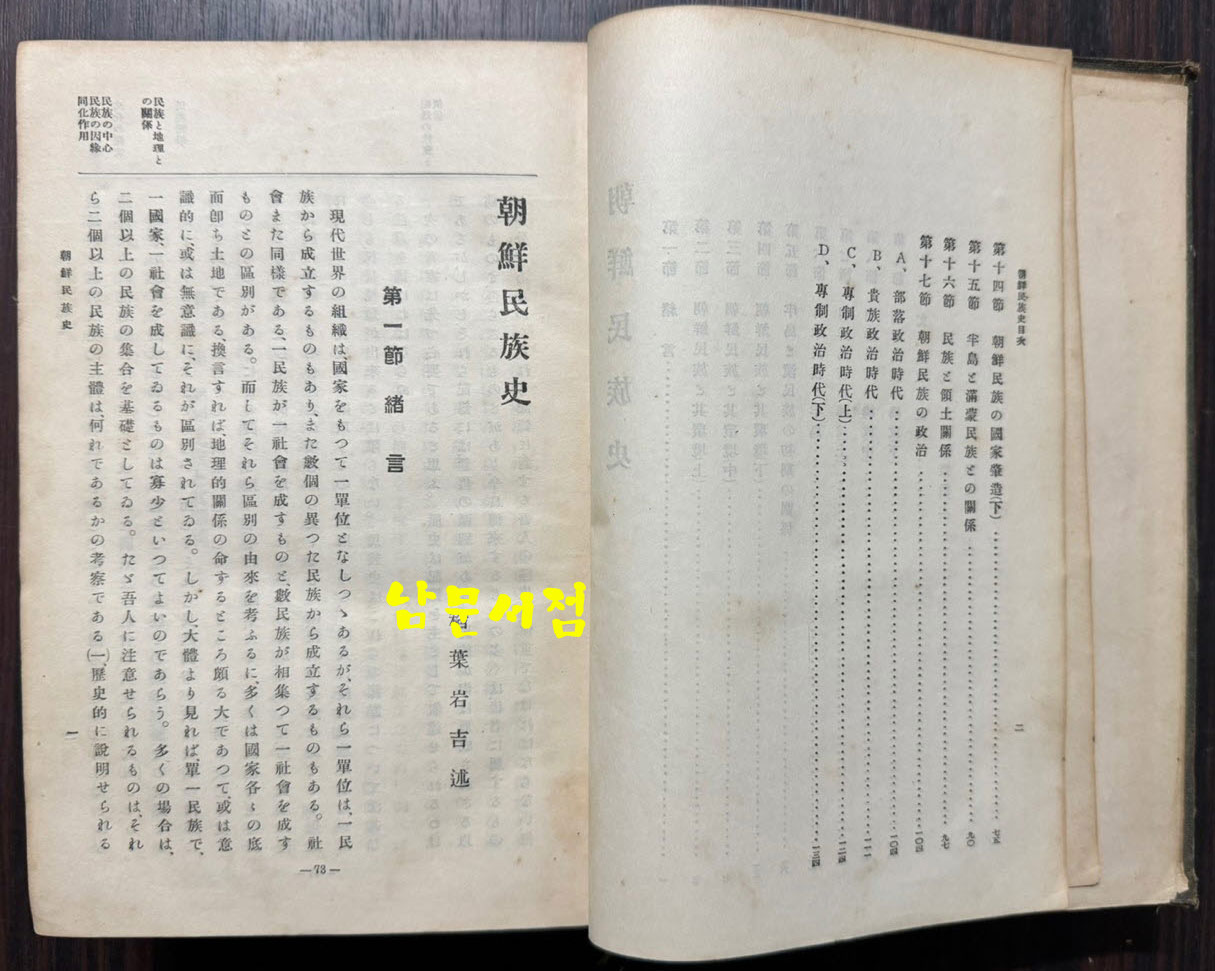 朝鮮民族史目次
第十四節　朝鮮民族の國家肇造(下)……七五
第十五節　半島と滿蒙民族との關係……九〇
第十六節　民族と領土關係……九七
第十七節　朝鮮民族の政治……一〇四
A、部落政治時代……一〇四
B、貴族政治時代……一一一
C、專制政治時代(上)……一二四
D、專制政治時代(下)……一三四
二
朝鮮民族史
葉岩吉述
第一節　緒言
民族と地理と
の關係
民族の中心
民族の因緣
同化作用
現代世界の組織は、國家をもつて一單位となしつゝあるが、それら一單位は、一民
族から成立するものもあり、また數個の異つた民族から成立するものもある。社
會また同樣である、一民族が一社會を成すものと、數民族が相集つて一社會を成す
ものとの區別がある。而してそれら區別の由來を考ふるに、多くは國家各〻の底
面卽ち土地である、換言すれば、地理的關係の命するところ頗る大であつて、或は意
識的に、或は無意識に、それが區別されてゐる。しかし、大體より見れば、單一民族で、
一國家、一社會を成してゐるものは寡少といつてよいのであらう。多くの場合は、
二個以上の民族の集合を基礎としてゐる。たゞ吾人に注意せられるものは、それ
ら二個以上の民族の主體は、何れであるかの考察である(一、歷史的に說明せられる
朝鮮民族史
一
—73—
남문서점